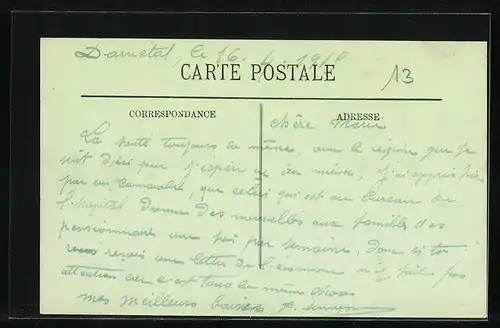 Darnetal, le 16. 4. 1918
13
CARTE POSTALE
CORRESPONDANCE
ADRESSE
Chère Marie
La santé toujours de même, avec le régime que je
suit d'ici peu j'espère mieux, j'ai appris
par un camarade, que celui qui est au bureau de
l'hôpital donne des nouvelles aux familles des
pensionnaires une foi par semaine, donc si tu
reçois une lettre de l'économe n'y fait pas
attention car c'est tous la même choses
mes meilleurs baisers